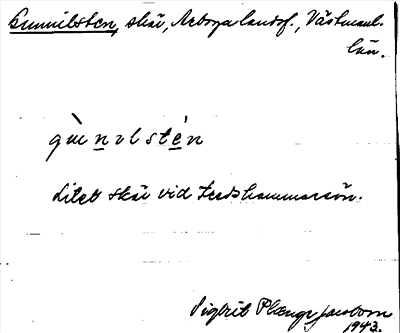 Gunnilsten, skär, Arboga landsf., Västmanl.
län.
gùnnvlstèn
Litet skär vid Tedshammarsön.
Sigbrit Plænge Jacobson
1943.